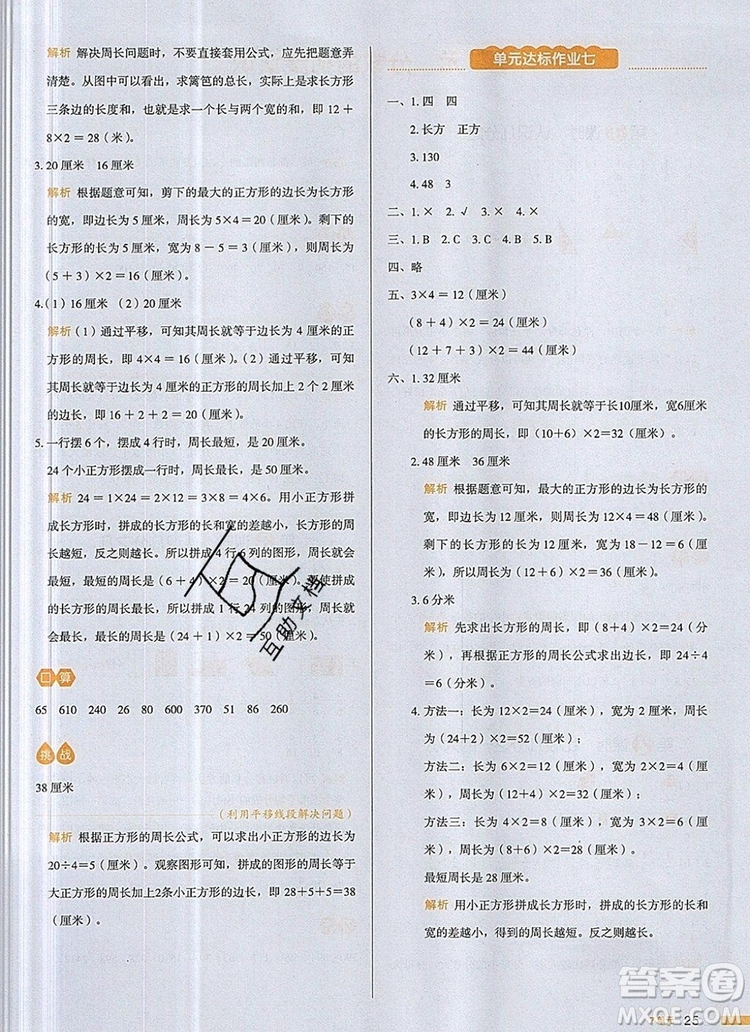 解析 解决周长问题时，不要直接套用公式，应先把题意弄
清楚。从图中可以看出，求篱笆的总长，实际上是求长方形
三条边的长度和，也就是求一个长与两个宽的和，即 12 +
8×2 = 28（米）。
3. 20 厘米 16 厘米
解析 根据题意可知，剪下的最大的正方形的边长为长方形
的宽，即边长为 5 厘米，周长为 5×4 = 20（厘米）。剩下的
长方形的宽为 8 － 5 = 3（厘米），所以剩下的长方形的周长为
（5 + 3）×2 = 16（厘米）。
4.（1）16 厘米 （2）20 厘米
解析（1）通过平移，可知其周长就等于边长为 4 厘米的正
方形的周长，即 4×4 = 16（厘米）。（2）通过平移，可知其
周长就等于边长为 4 厘米的正方形的周长加上 2 条 2 厘米的
边的长，即 16 + 2 + 2 = 20（厘米）。
5. 一行摆 6 个，摆成 4 行时，周长最短，是 20 厘米。
24 个小正方形摆成一行时，周长最长，是 50 厘米。
解析 24 = 1×24 = 2×12 = 3×8 = 4×6。用小正方形拼
成长方形时，拼成的长方形的长和宽的差越小，长方形的周
长越短，反之则越长。所以拼成 4 行 6 列的图形，周长最
短，最短的周长是（6 + 4）×2 = 20（厘米）。要使拼成的
周长最长，所以应该拼成 1 行 24 列的图形，周长最长，最
长的周长是（24 + 1）×2 = 50（厘米）。
口算
65 610 240 26 80 600 870 51 86 260
挑战
38 厘米
（利用平移线段解决问题）
解析 根据正方形的周长公式，可以求出小正方形的边长为
20÷4 = 5（厘米）。观察图形可知，拼成的图形的周长等于
大正方形的周长加上2条小正方形的边长，即 28 + 5 + 5 = 38
（厘米）。
单元达标作业七
一、1. 四 四
2. 长方 正方
3. 130
4. 48 3
二、1. × 2. √ 3. × 4. ×
三、1. B 2. C 3. B 4. C 5. B
四、略
五、3×4 = 12（厘米）
（8 + 4）×2 = 24（厘米）
（12 + 7 + 3）×2 = 44（厘米）
六、1. 32 厘米
解析 通过平移，可知其周长就等于长10厘米，宽6厘
米的长方形的周长，即（10+6）×2=32（厘米）。
2. 48 厘米 36 厘米
解析 根据题意可知，最大的正方形的边长为长方形
的宽，即边长为 12 厘米，周长为 12×4 = 48（厘米）。
剩下的小长方形的宽为 18－12 = 6（厘米），所以周长
为（12 + 6）×2 = 36（厘米）。
3. 6 分米
解析 先求出长方形的周长，即（8 + 4）×2 = 24（分
米），再根据正方形的周长公式求出边长，即 24÷4 =
6（分米）。
4. 方法一：长为 12×2 = 24（厘米），宽为 2 厘米，周长
为（24+2）×2 = 52（厘米）。
方法二：长为 12 厘米，宽为 2×2 = 4（厘米），周长
为（12+4）×2 = 32（厘米）。
方法三：长为 4×2 = 8（厘米），宽为 2×3 = 6（厘米），
周长为（8+6）×2 = 28（厘米）。
最短周长是 28 厘米。
解析 用小正方形拼成长方形时，拼成的长方形的长和
宽的差越小，得到的周长越短。反之则越长。
互助文档
答案圈
MXQE.COM
25